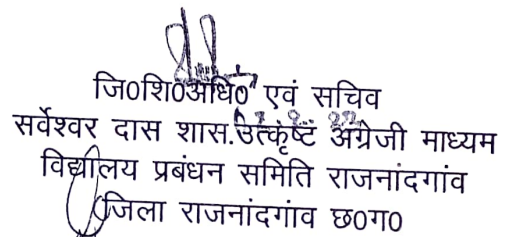 जि0शि0अधि0 एवं सचिव
सर्वेश्वर दास शास.उत्कृष्ट अंग्रेजी माध्यम
विद्यालय प्रबंधन समिति राजनांदगांव
जिला राजनांदगांव छ0ग0